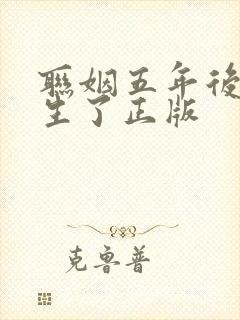 聯姻五年後
生了正版
克魯普